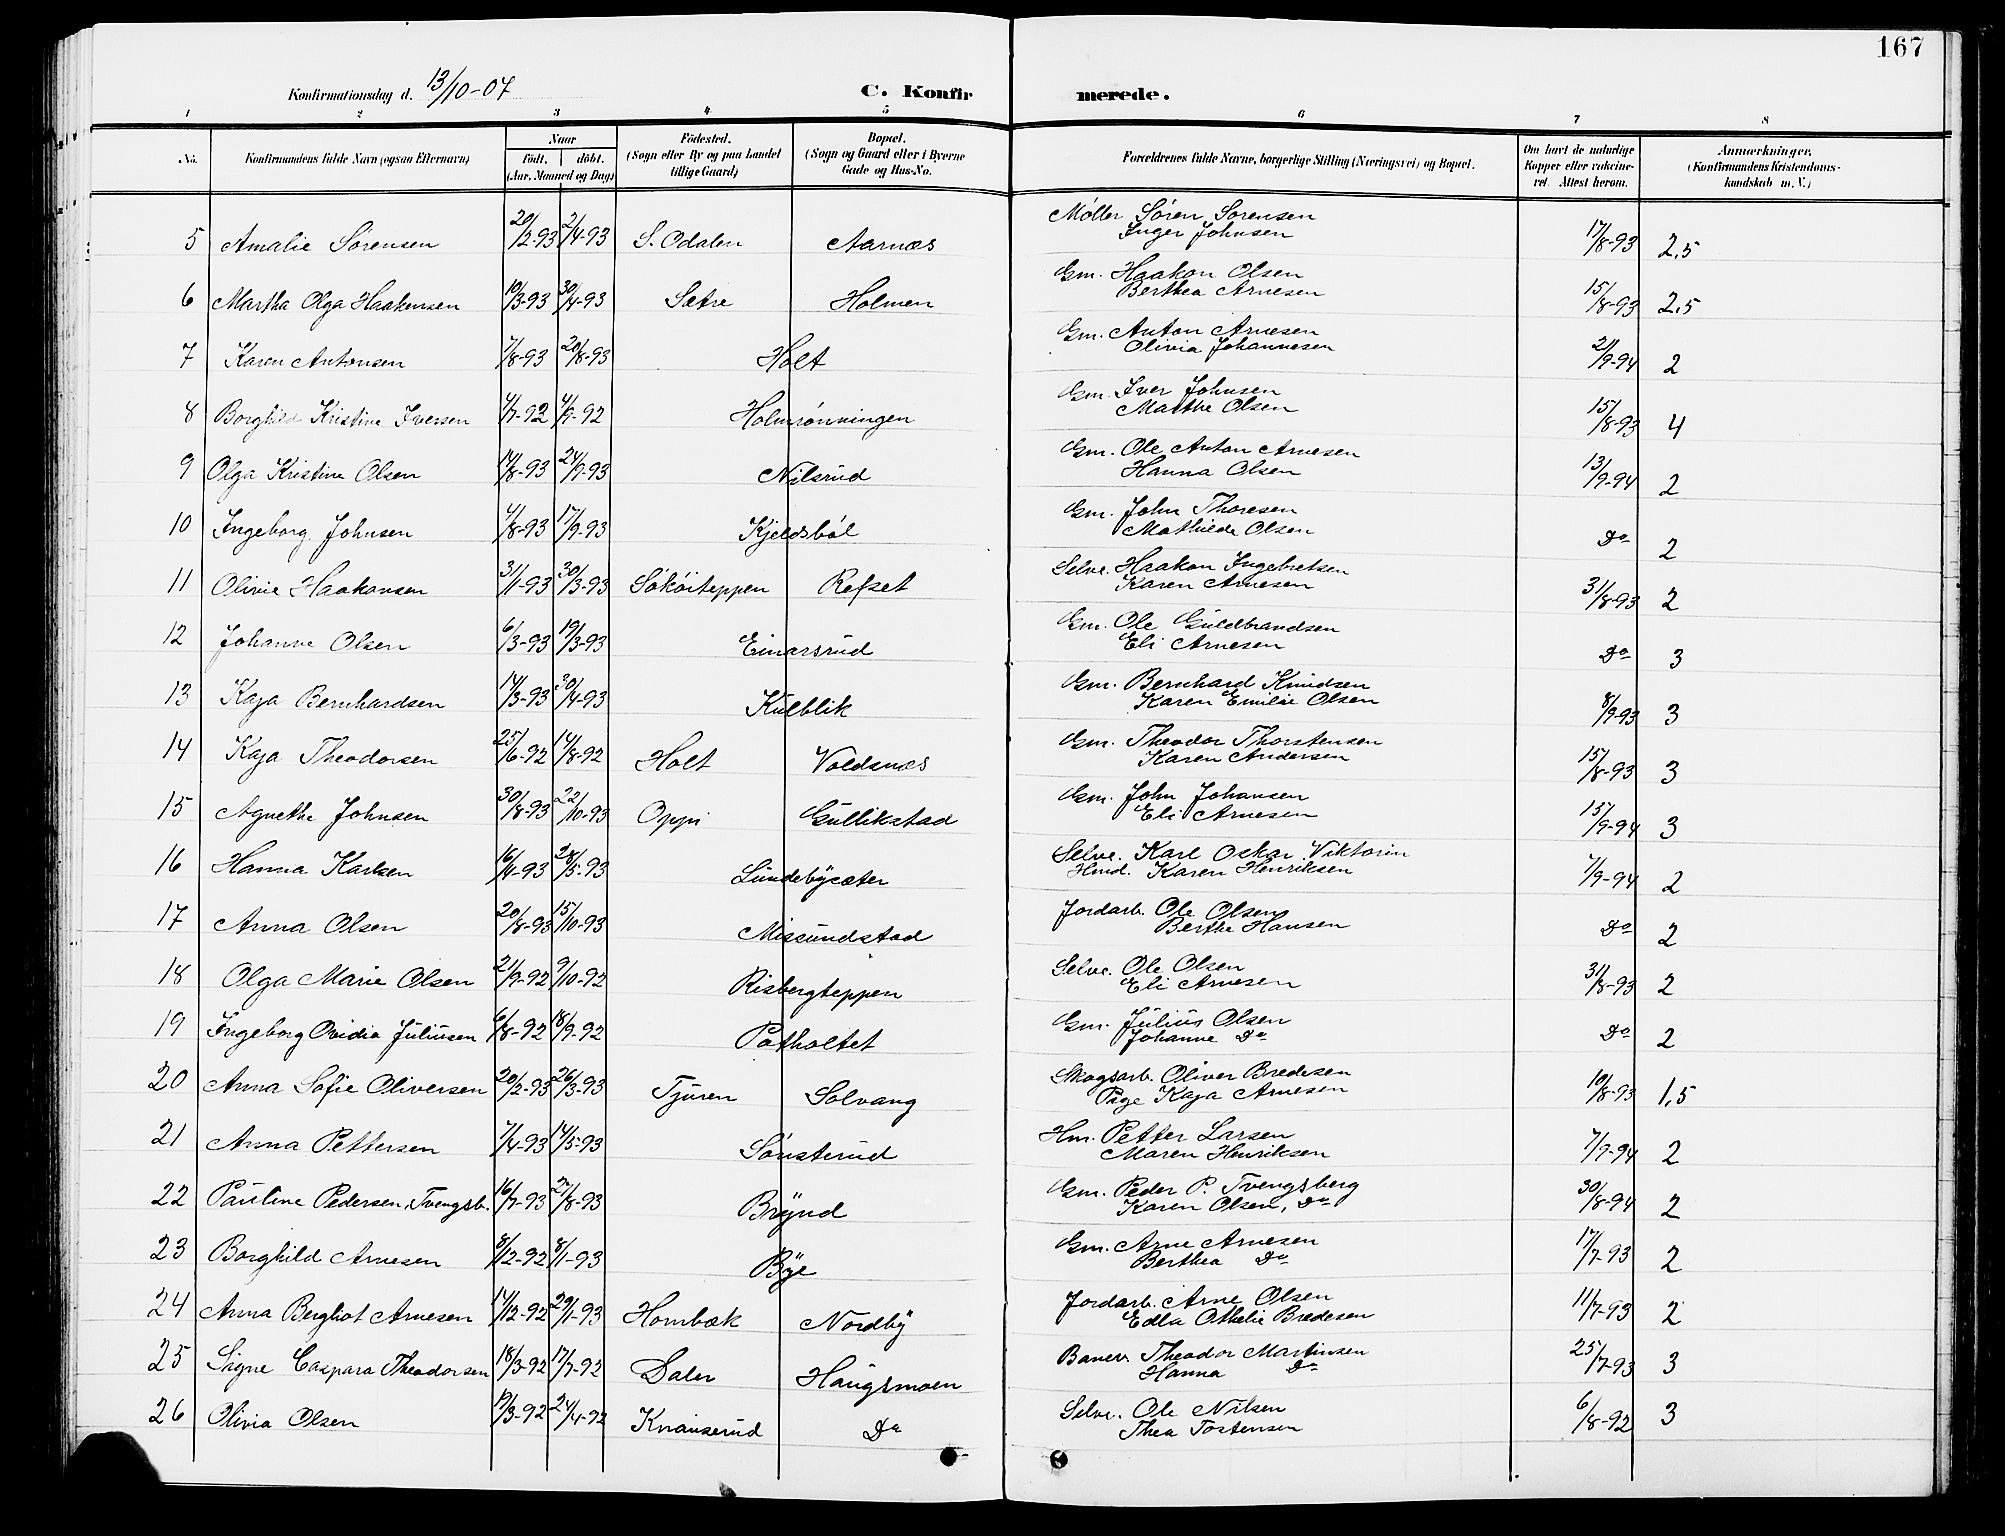 167
Konfirmationsdag d. 13/10-07
C. Konfirmerede.
1 2 3 4 5 6 7 8
No. Konfirmandens fulde Navn (ogsaa Efternavn) Naar Födt, döbt. (Aar, Maaned og Dag) Födested. (Sogn eller By og paa Landet tillige Gaard) Bopæl. (Sogn og Gaard eller i Byerne Gade og Hus-No. Forældrenes fulde Navne, borgerlige Stilling (Næringsvei) og Bopæl. Om havt de naturlige Kopper eller vakcineret. Attest herom. Anmærkninger. (Konfirmandens Kristendomskundskab m. V.)
5 Amalie Sørensen 20/2-93 2/4-93 S. Odalen Aarnæs Møller Søren Sørensen
Inger Johnsen 17/8-93 2,5
6 Martha Olga Haakensen 10/3-93 30/4-93 Sætre Holmen Gm. Haakon Olsen
Berthea Arnesen 15/8-93 2,5
7 Karen Antonsen 7/8-93 20/8-93 Holt Gm. Anton Arnesen
Olivia Johannesen 21/9-94 2
8 Borghild Kristine Iversen 4/7-92 4/9-92 Holmrønningen Gm. Iver Johnsen
Marthe Olsen 15/8-93 4
9 Olga Kristine Olsen 14/8-93 24/9-93 Nilsrud Gm. Ole Anton Arnesen
Hanna Olsen 13/9-94 2
10 Ingeborg Johnsen 4/8-93 17/9-93 Kjeldsböl Gm. John Thoresen
Mathilde Olsen Do 2
11 Olivie Haakonsen 31/1-93 30/3-93 Sököiteppen Refset Selve. Haakon Ingebretsen
Karen Arnesen 31/8-93 2
12 Johanne Olsen 6/3-93 19/3-93 Einarsrud Gm. Ole Guldbrandsen
Eli Arnesen Do 3
13 Kaja Bernhardsen 14/3-93 30/4-93 Kulblik Gm. Bernhard Knudsen
Karen Emilie Olsen 8/9-93 3
14 Kaja Theodorsen 25/6-92 14/8-92 Holt Voldsnæs Gm. Theodor Thorstensen
Karen Andersen 15/8-93 3
15 Agnethe Johnsen 30/8-93 22/10-93 Oppi Gullikstad Gm. John Johansen
Eli Arnesen 15/9-94 3
16 Hanna Karlsen 16/4-93 28/5-93 Lundebysæter Selve. Karl Oskar Viktorin
Hmd. Karen Henriksen 7/9-94 2
17 Anna Olsen 20/8-93 15/10-93 Missundstad Jordarb. Ole Olsen
Berthe Hansen Do 2
18 Olga Marie Olsen 21/9-92 9/10-92 Risbergteppen Selve. Ole Olsen
Eli Arnesen 31/8-93 2
19 Ingeborg Ovidia Juliusen 6/8-92 18/9-92 Potholtet Gm. Julius Olsen
Johanne Do Do 2
20 Anna Sofie Oliversen 20/2-93 26/3-93 Tjuren Solvang Skogsarb. Oliver Bredesen
Pige Kaja Arnesen 10/8-93 1,5
21 Anna Pettersen 7/4-93 14/5-93 Sönsterud Hm. Petter Larsen
Maren Henriksen 7/9-94 2
22 Pauline Pedersen, Tvengsb. 16/7-93 27/8-93 Brynd Gm. Peder P. Tvengsberg
Karen Olsen, Do 30/8-94 2
23 Borghild Arnesen 8/12-92 8/1-93 Bye Gm. Arne Arnesen
Berthea Do 17/7-93 2
24 Anna Bergliot Arnesen 14/12-92 29/1-93 Hornbæk Nordby Jordarb. Arne Olsen
Edla Othelie Bredesen 11/7-93 2
25 Signe Caspara Theodorsen 18/3-92 17/7-92 Dalen Haugsmoen Banev. Theodor Martinsen
Hanna Do 25/7-93 3
26 Olivia Olsen 19/3-92 24/4-92 Knauserud Do Selve. Ole Nilsen
Thea Tostensen 6/8-92 3